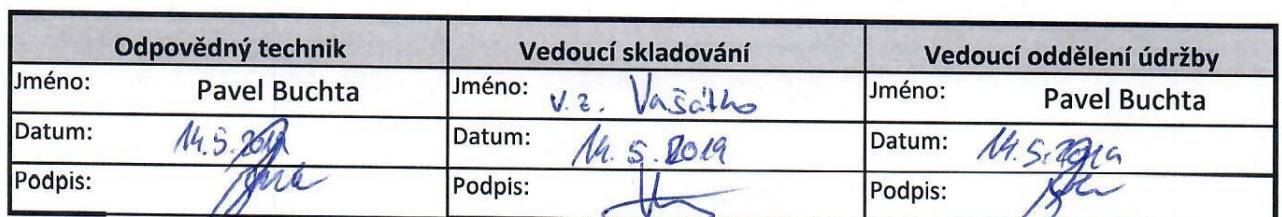 Odpovědný technik Vedoucí skladování Vedoucí oddělení údržby
Jméno: Pavel Buchta Jméno: v.z. Vašátko Jméno: Pavel Buchta
Datum: 14.5.2019 Datum: 14.5.2019 Datum: 14.5.2019
Podpis: Podpis: Podpis: